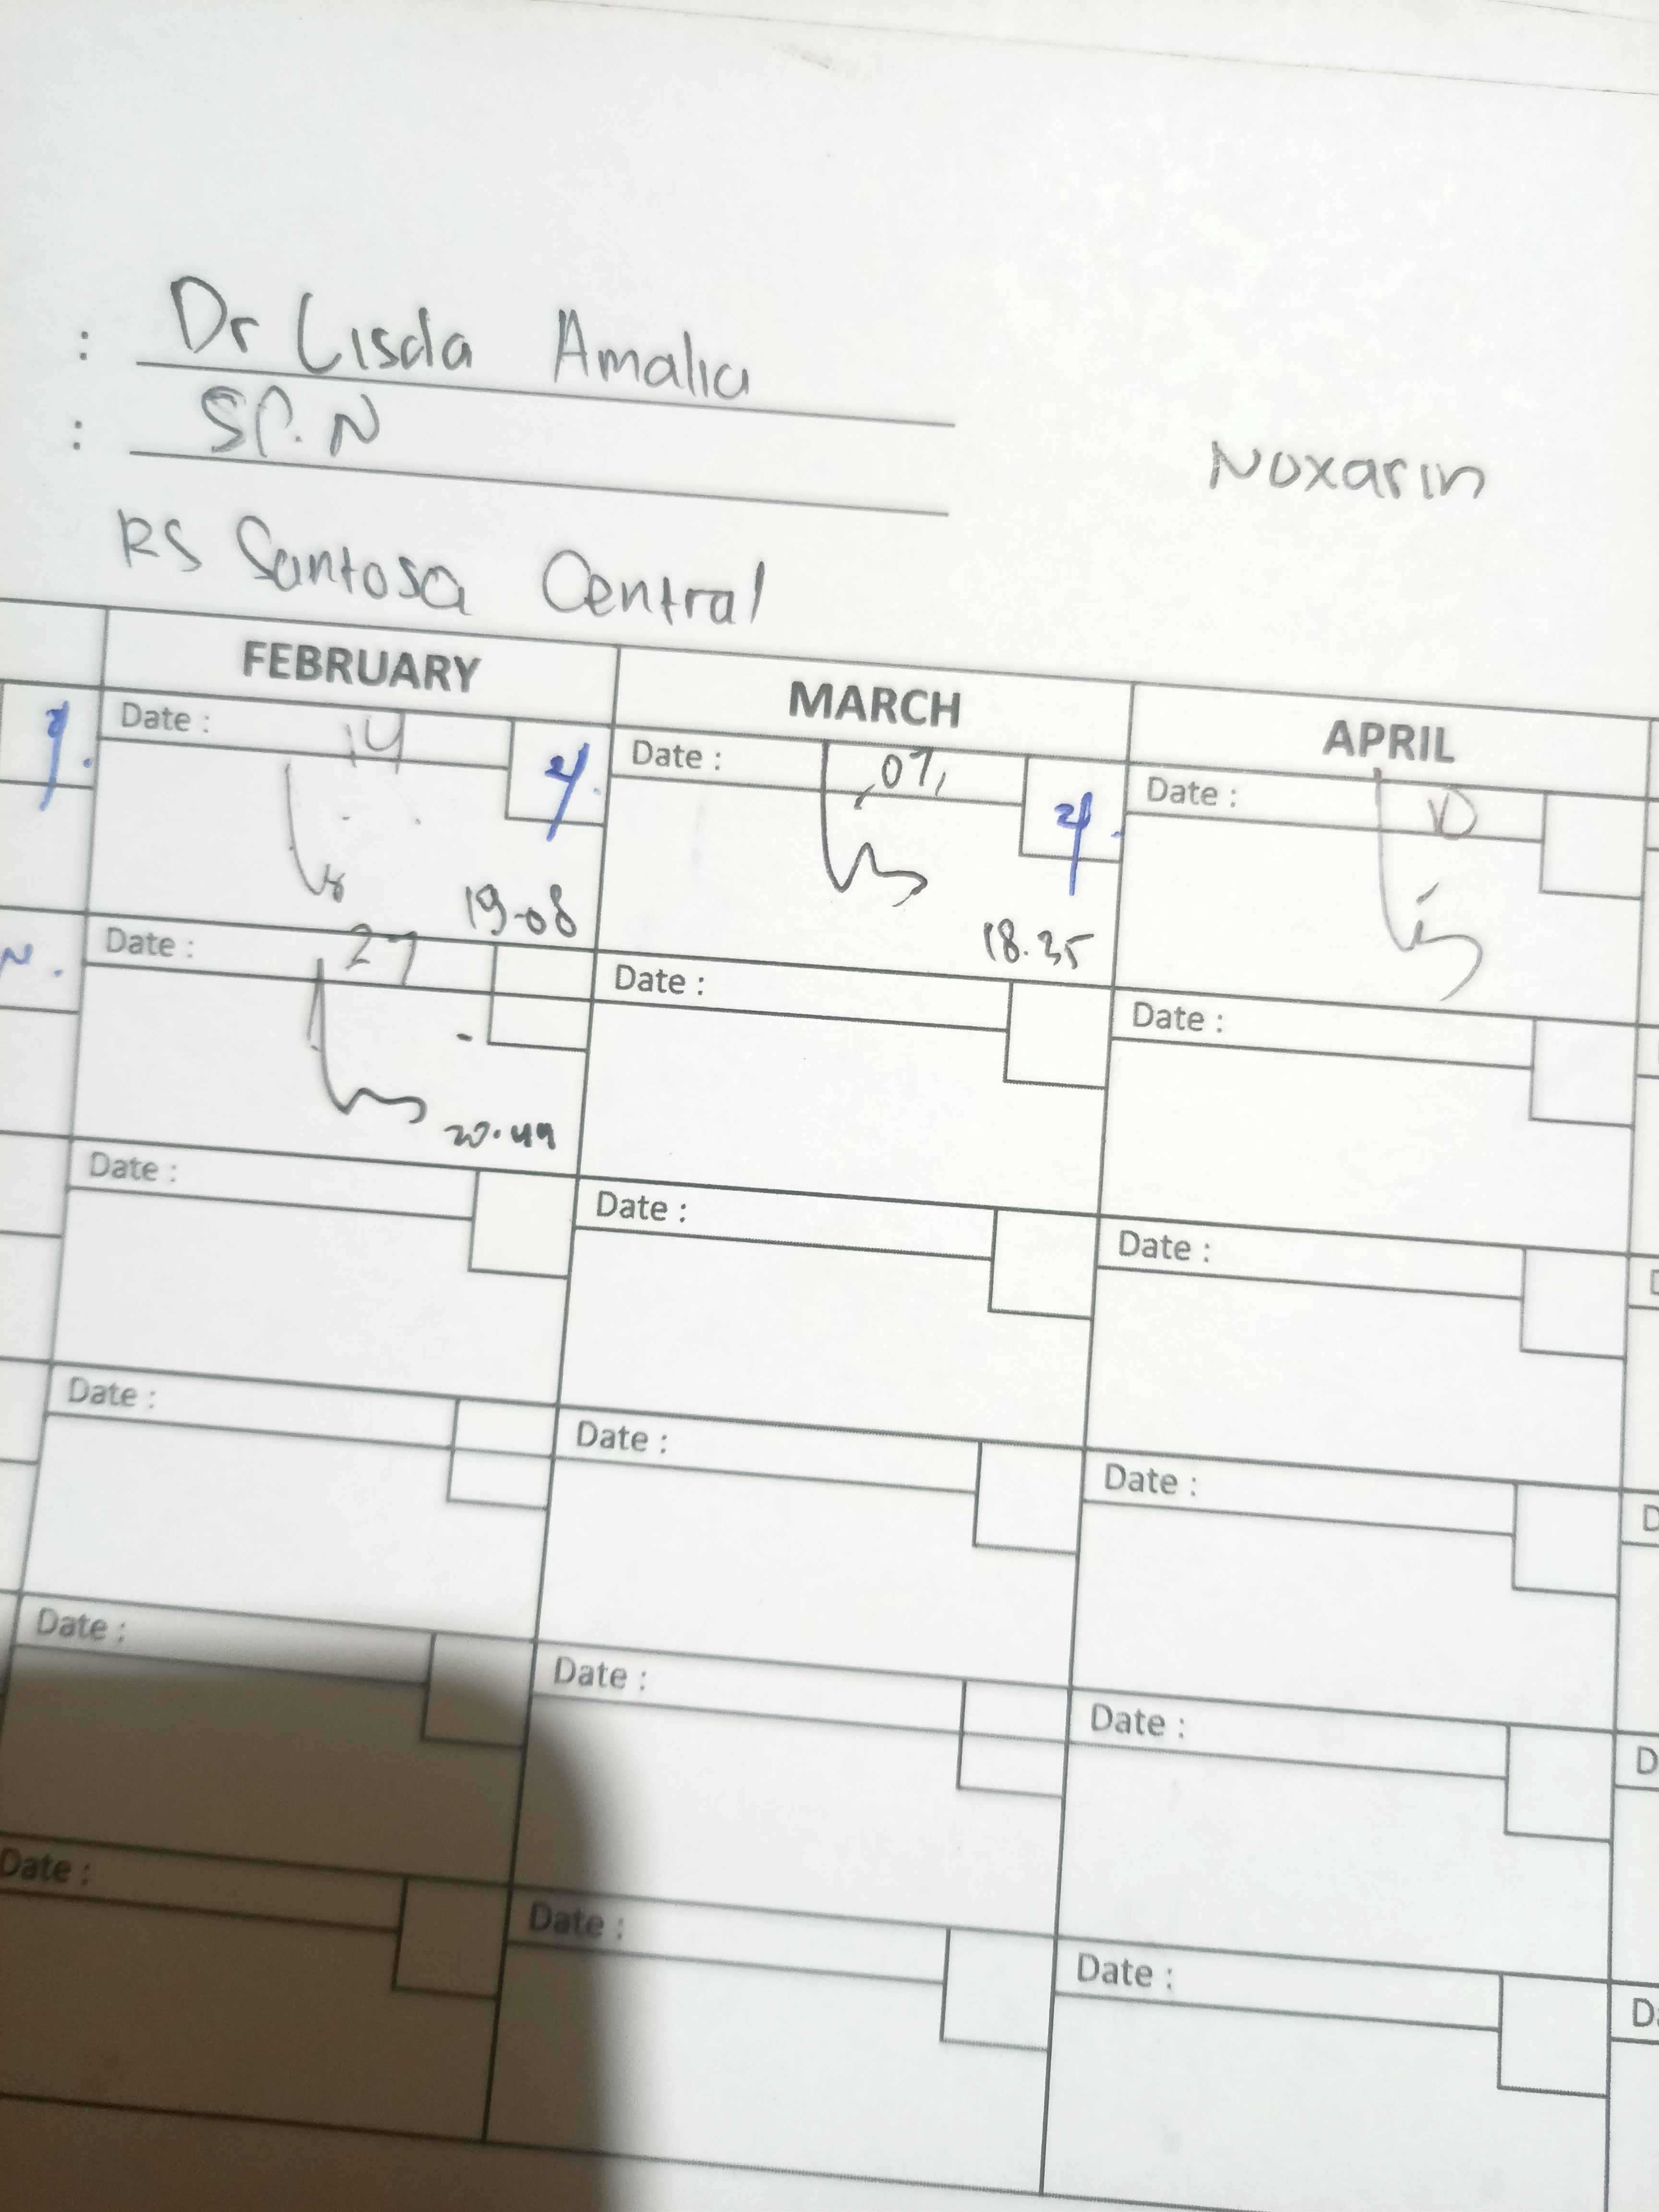 : Dr Lisda Amalia
: SP.N
Noxarin
RS Santosa Central
FEBRUARY MARCH APRIL
Date : 14 Date : 07 Date : 10
19-08 18.35
Date : 27 Date : Date :
20.49
Date : Date : Date :
Date : Date : Date :
Date : Date : Date :
Date : Date : Date :